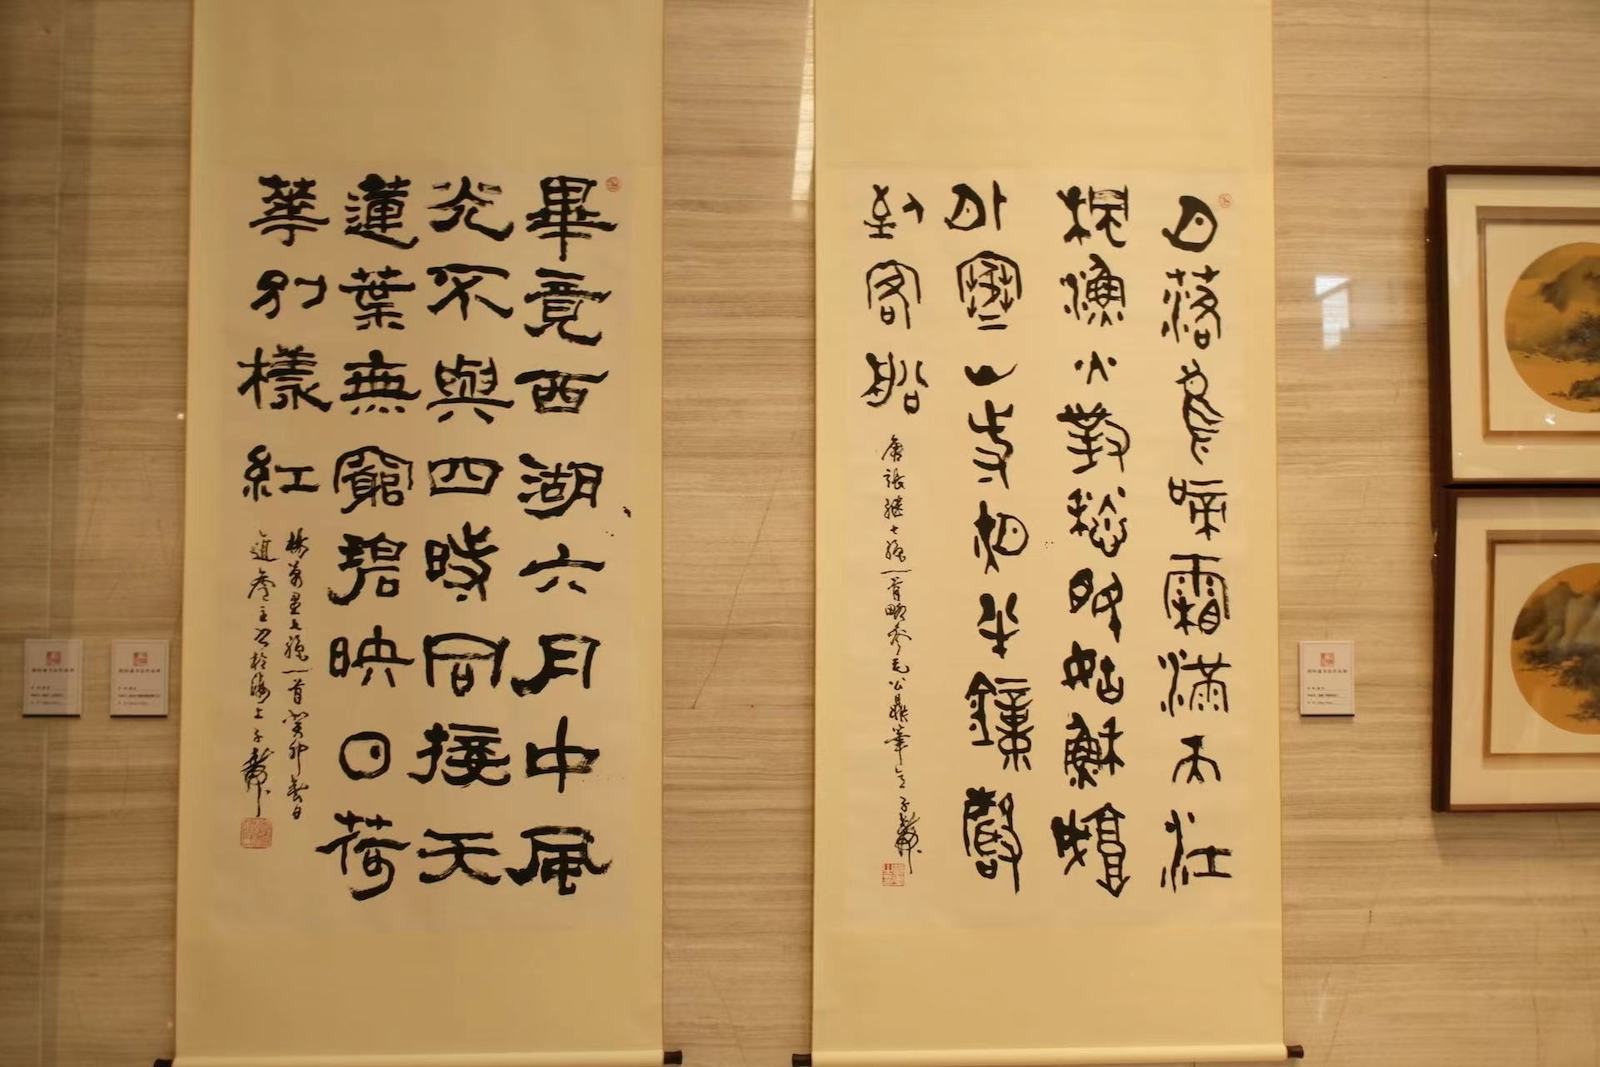 畢竟西湖六月中風
光不與四時同接天
蓮葉無窮碧映日荷
華別樣紅
楊萬里七絕一首癸卯春日
於海上子
月落烏啼霜滿天江
楓漁火對愁眠姑蘇城
外寒山寺夜半鐘聲
到客船
唐張繼七絕一首略參毛公鼎筆意子